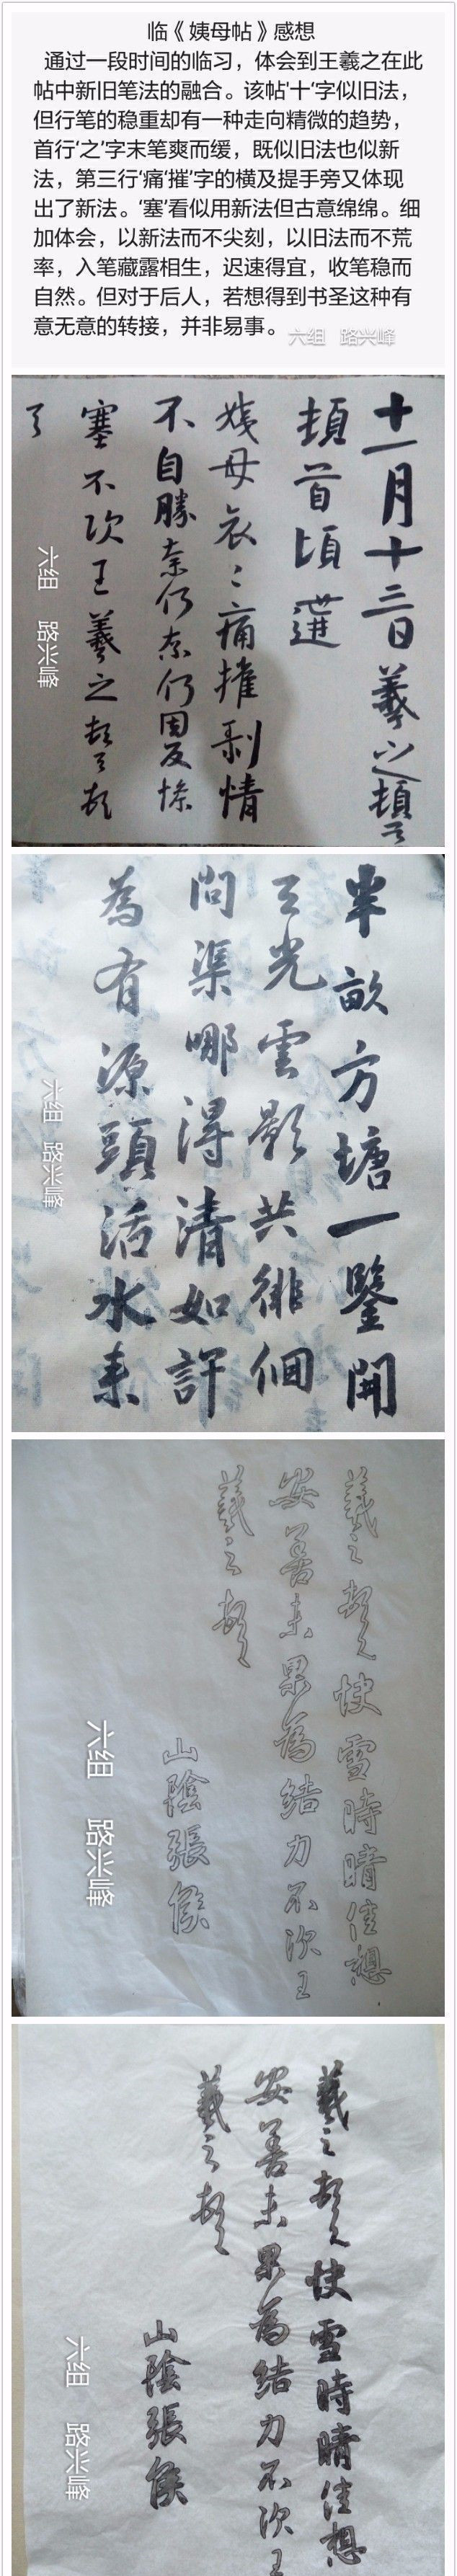 临《姨母帖》感想
通过一段时间的临习，体会到王羲之在此
帖中新旧笔法的融合。该帖'十'字似旧法，
但行笔的稳重却有一种走向精微的趋势，
首行‘之’字末笔爽而缓，既似旧法也似新
法，第三行‘痛’摧’字的横及提手旁又体现
出了新法。‘塞’看似用新法但古意绵绵。细
加体会，以新法而不尖刻，以旧法而不荒
率，入笔藏露相生，迟速得宜，收笔稳而
自然。但对于后人，若想得到书圣这种有
意无意的转接，并非易事。
六组 路兴峰
十一月十三日羲之頓
頓首頃遘
姨母哀〻痛摧剥情
不自勝奈何奈何因反慘
塞不次王羲之頓首頓
首
六组 路兴峰
半畝方塘一鑒開
天光雲影共徘徊
問渠哪得清如許
為有源頭活水來
六组 路兴峰
羲之頓首快雪時晴佳想
安善未果為結力不次王
羲之頓首
山陰張侯
六组 路兴峰
羲之頓首快雪時晴佳想
安善未果為結力不次王
羲之頓首
山陰張侯
六组 路兴峰